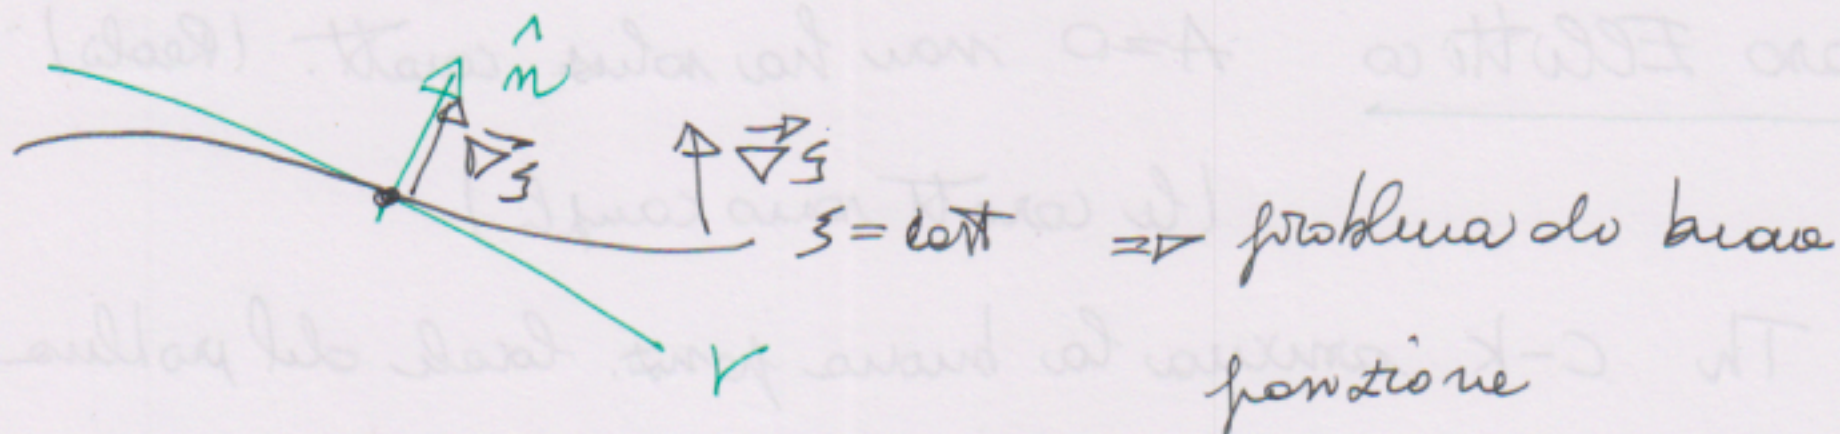 n̂
∇⃗ξ
∇⃗ξ
ξ = cost ⇒ problema di buona
posizione
γ